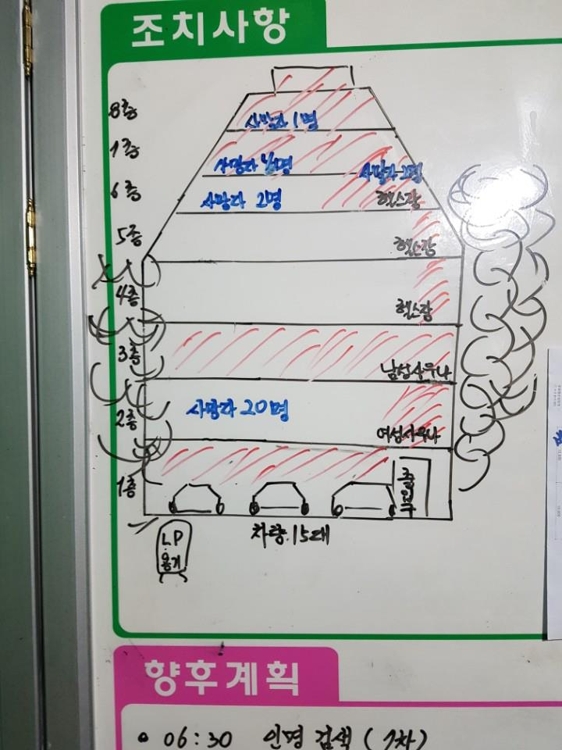 조치사항
8층
사망자 1명
7층
사망자 4명
사망자 2명
6층
사망자 2명
헬스장
5층
헬스장
4층
헬스장
3층
남성사우나
2층
사망자 20명
여성사우나
1층
출입구
차량 15대
L.P
용기
향후계획
• 06:30 인명 검색 (1차)